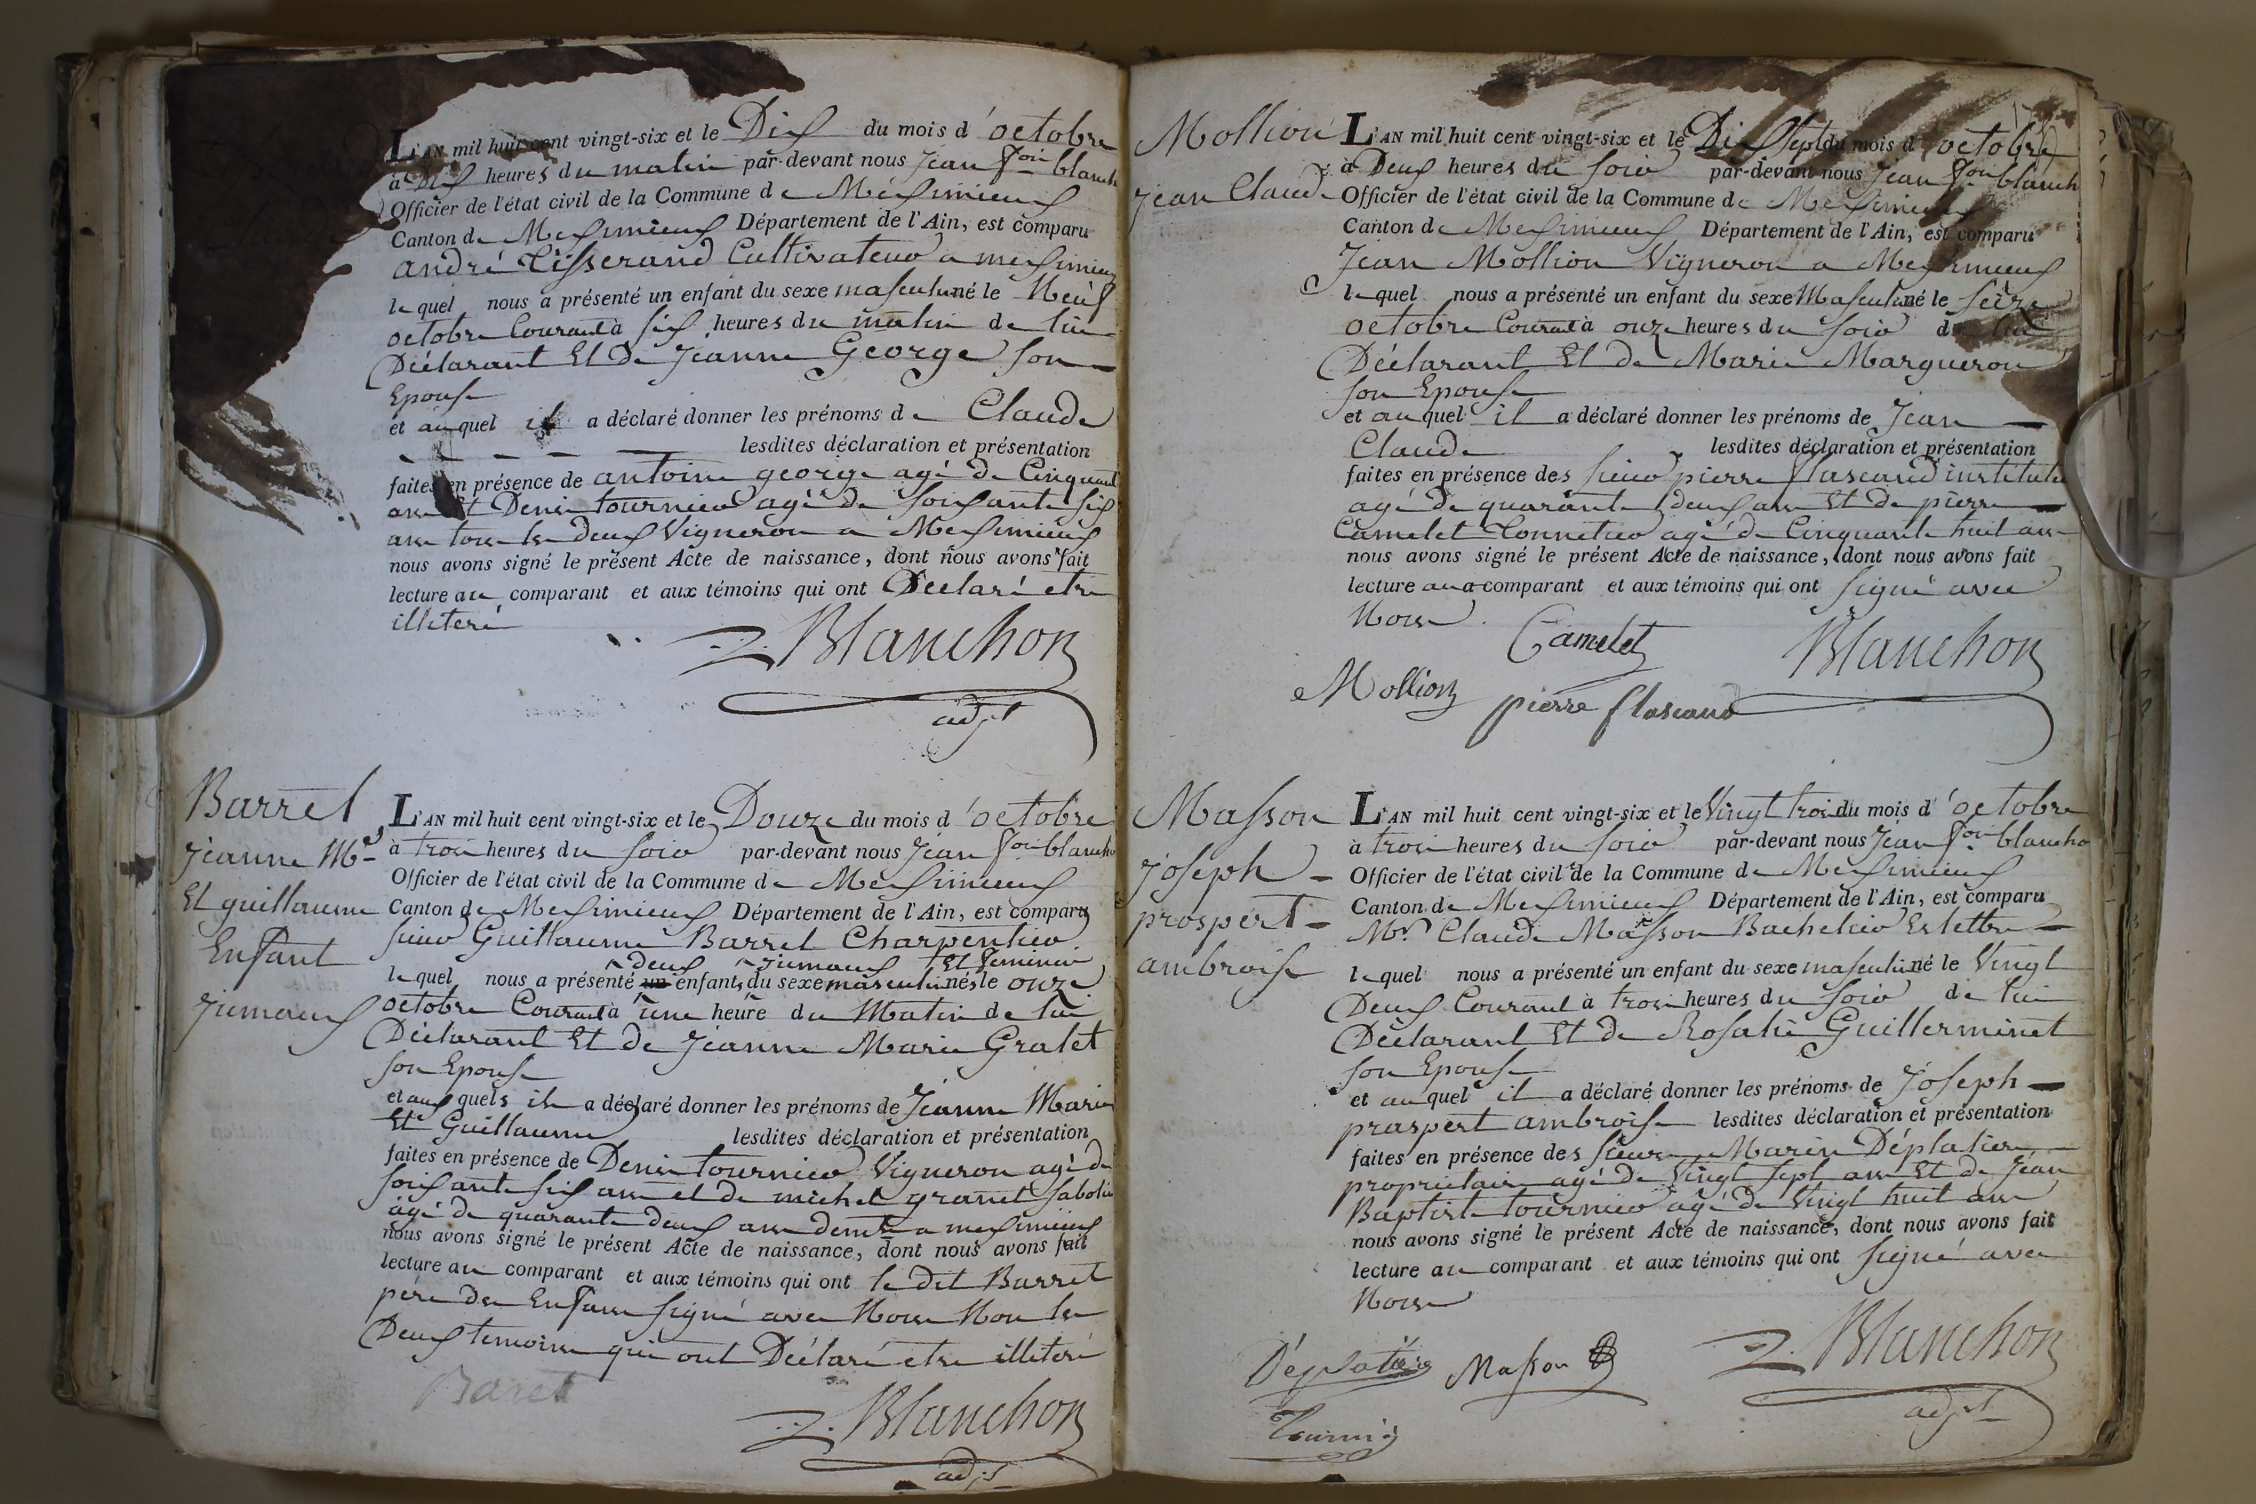 L'AN mil huit cent vingt-six et le Dix du mois d'octobre
à Dix heures du matin par-devant nous Jean fois blanch
Officier de l'état civil de la Commune de Meximieux
Canton de Meximieux Département de l'Ain, est comparu
andré Tisserand Cultivateur a meximieux
lequel nous a présenté un enfant du sexe masculin né le Neuf
octobre Courant à six heures du matin de lui
Déclarant Et De Jeanne George son
Epouse
et auquel il a déclaré donner les prénoms de Claude
lesdites déclaration et présentation
faites en présence de antoine george agé de Cinquante
ans Et Denis tournier agé de soixante six
ans tous les deux Vigneron a Meximieux
nous avons signé le présent Acte de naissance, dont nous avons fait
lecture au comparant et aux témoins qui ont Déclaré etre
illiteré
Blanchon
adjt
Barret
Jeanne Mie
Et guillaume
Enfant
Jumeaux
L'AN mil huit cent vingt-six et le Douze du mois d'octobre
à trois heures du soir par-devant nous Jean fois blancho
Officier de l'état civil de la Commune de Meximieux
Canton de Meximieux Département de l'Ain, est comparu
sieur Guillaume Barret Charpentier
deux Jumeaux Et feminin
lequel nous a présenté un enfants du sexe masculin nés le onze
octobre Courant à une heure du Matin de lui
Déclarant Et de Jeanne Marie Gralet
son Epouse
et auxquels il a déclaré donner les prénoms de Jeanne Marie
Et Guillaume lesdites déclaration et présentation
faites en présence de Denis tournier Vigneron agé de
soixante six ans et de michel granet sabotier
âgé de quarante deux ans demt a meximieux
nous avons signé le présent Acte de naissance, dont nous avons fait
lecture au comparant et aux témoins qui ont le dit Barret
père des Enfans signé avec Nous Non les
Deux temoins qui ont Déclaré etre illiteré
Baret
Blanchon
adjt
Mollion
Jean Claude
L'AN mil huit cent vingt-six et le Dix sept du mois d'octobre
à Deux heures du soir par-devant nous Jean fois blanch
Officier de l'état civil de la Commune de Meximieux
Canton de Meximieux Département de l'Ain, est comparu
Jean Mollion Vigneron a Meximieux
lequel nous a présenté un enfant du sexe Masculin né le seize
octobre Courant à onze heures du soir de lui
Déclarant Et de Marie Margueron
son Epouse
et auquel il a déclaré donner les prénoms de Jean
Claude lesdites déclaration et présentation
faites en présence des sieur pierre flascaud institute
agé de quarante deux ans Et de pierre
Camelet Tonnelier agé de Cinquante huit ans
nous avons signé le présent Acte de naissance, dont nous avons fait
lecture au comparant et aux témoins qui ont signé avec
Nous
Camelet
Blanchon
Mollion pierre flascaud
Masson
Joseph
prospert
ambroise
L'AN mil huit cent vingt-six et le Vingt trois du mois d'octobre
à trois heures du soir par-devant nous Jean fois blancho
Officier de l'état civil de la Commune de Meximieux
Canton de Meximieux Département de l'Ain, est comparu
Mr Claude Masson Bachelier Es lettre
lequel nous a présenté un enfant du sexe masculin né le Vingt
Deux Courant à trois heures du soir de lui
Déclarant Et de Rosalie Guillerminet
son Epouse
et auquel il a déclaré donner les prénoms de Joseph
praspert ambroise lesdites déclaration et présentation
faites en présence des sieurs Marin Déplatier
proprietaire agé de Vingt sept ans Et de Jean
Baptiste tournier agé de Vingt huit ans
nous avons signé le présent Acte de naissance, dont nous avons fait
lecture au comparant et aux témoins qui ont signé avec
Nous
Blanchon
Masson
adjt